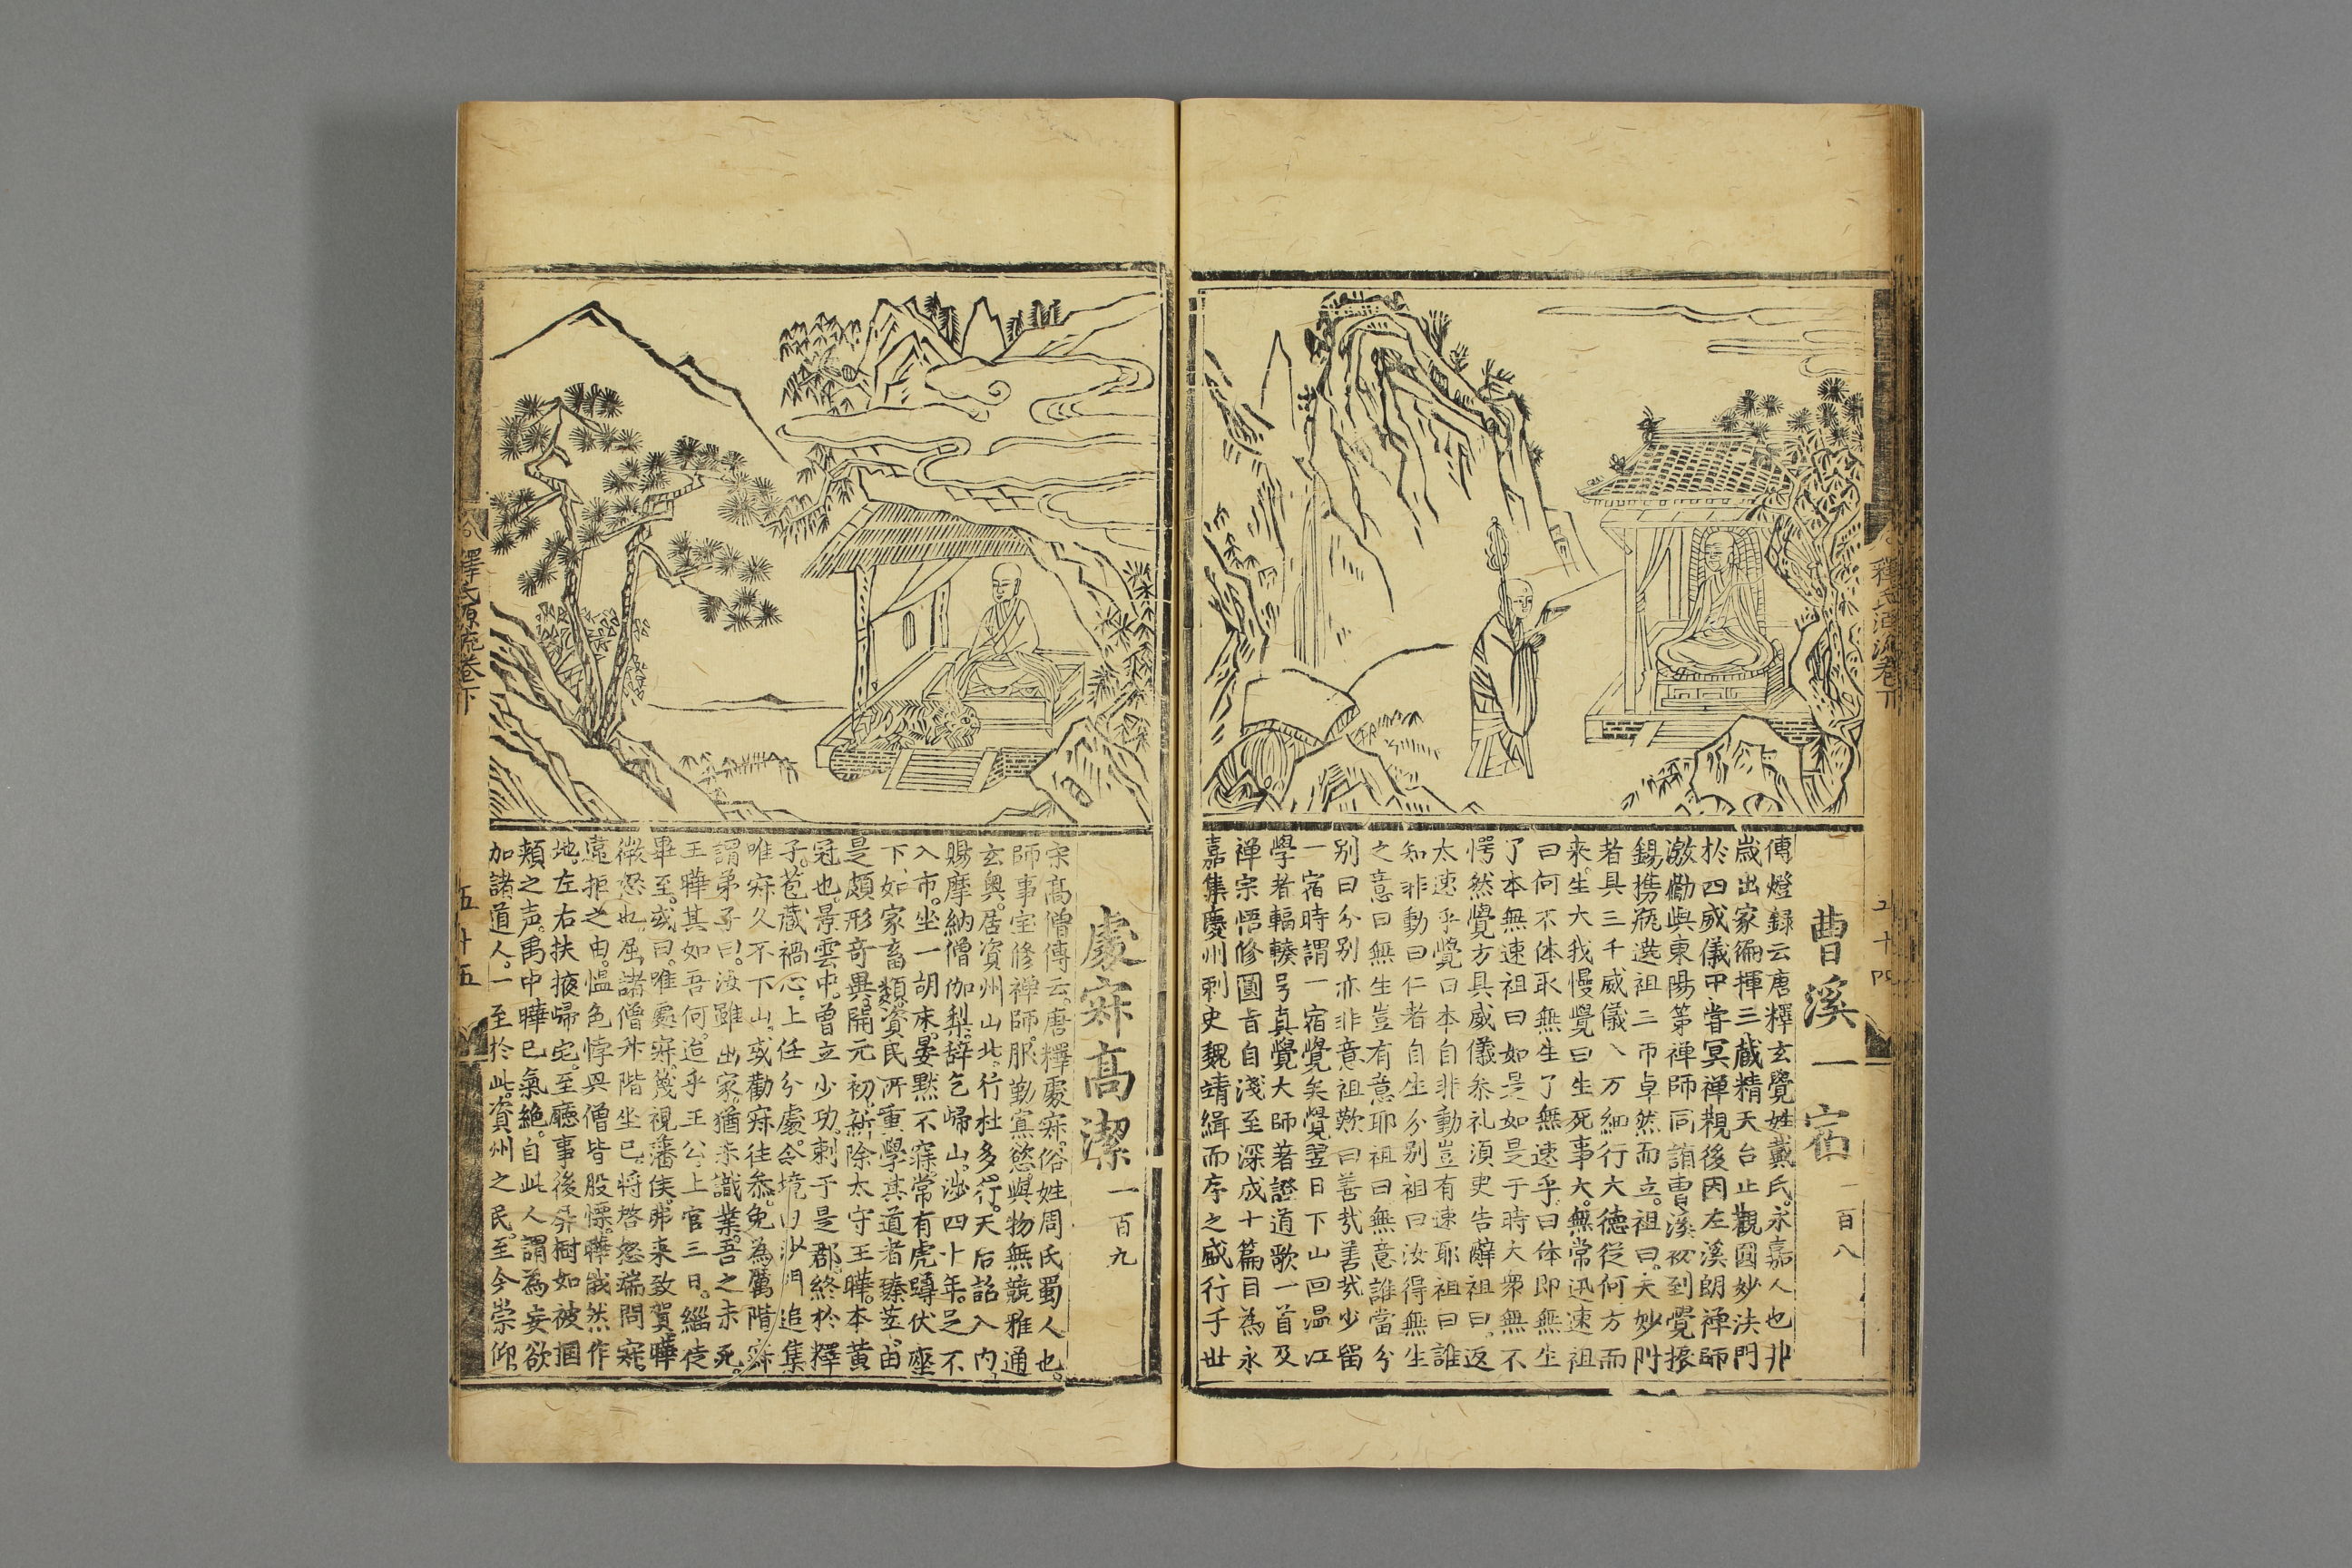 釋氏源流卷下
五十四
曹溪一宿 一百八
傳燈録云唐釋玄覺姓戴氏。永嘉人也丱
歳出家徧揮三蔵精天台止觀圓妙法門
於四威儀中甞冥禅觀後因左溪朗禅師
激勵與東陽第禅師同詣曹溪初到覺振
錫携瓶遶祖三帀卓然而立。祖曰。夫沙門
者具三千威儀八万細行大德從何方而
来。生大我慢覺曰生死事大。無常迅速祖
曰何不体取無生了無速乎。曰体即無生
了本無速祖曰如是如是于時大衆無不
愕然覺方具威儀叅礼須臾告辭祖曰。返
太速乎覺曰本自非動豈有速耶祖曰誰
知非動曰仁者自生分别祖曰汝得無生
之意曰無生豈有意耶祖曰無意誰當分
别曰分别亦非意祖歎曰善㢤善㢤少留
一宿時謂一宿覺矣覺翌日下山回温江
學者輻輳号真覺大師著證道歌一首及
禅宗悟修圓旨自淺至深成十篇目為永
嘉集慶州刺史魏靖緝而序之盛行于世
處寂高潔 一百九
宋高僧傳云。唐釋處寂。俗姓周氏蜀人也。
師事宝修禅師。服勤寡慾。與物無競雅通
玄奥。居資州山北。行杜多行。天后詔入内。
賜摩納僧伽梨。辞乞歸山。渉四十年。足不
入市。坐一胡床。晏黙不寐常有虎蹲伏座
下。如家畜類。資民所重學其道者臻莖。由
是頗形奇異。開元初。新除太守王曄。本黄
冠也。景雲中。曾立少功。刺于是郡。終於釋
子。苞蔵禍心。上任分處。令境内沙門追集
唯寂久不下山。或勸寂往叅。免為厲階寂
謂弟子曰。汝雖出家。猶未識業。吾之未死。
王曄其如吾何。迨乎王公。上官三日。緇徒
畢至。或曰。唯處寂。篾視藩侯。弗来致賀。曄
微怒也。屈諸僧升階坐已。将啓怒端問寂。
違拒之由。愠色悖興。僧皆股慄。曄戢然作
地。左右扶掖歸宅。至廳事後屏樹如被摑
頬之声。禺中曄已氣絶。自此人謂為妄欲
加諸道人。一至於此。資州之民。至今崇仰
釋氏源流卷下
五十五